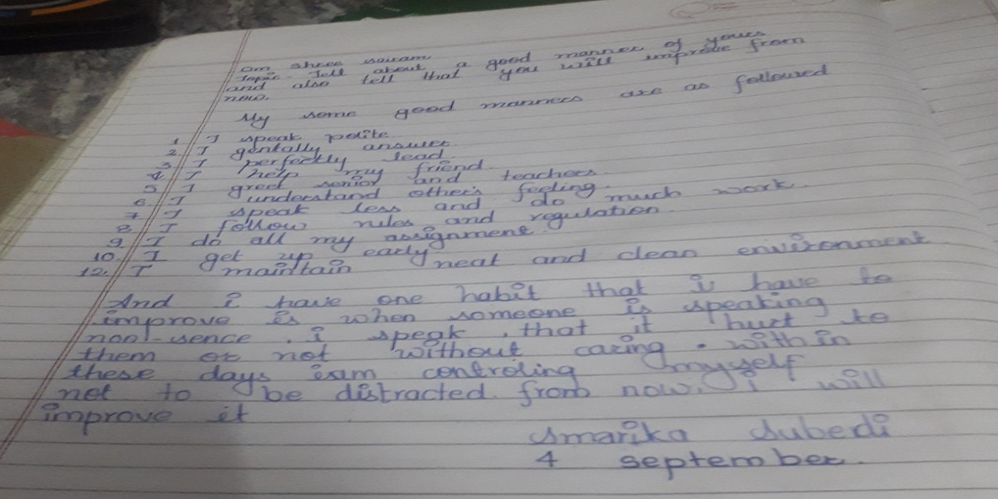 om shree sairam
Topic - Tell about a good manner of yours
and also tell that you will improve from
now.
My some good manners are as followed
1. I speak polite
2. I gentally answer
3. I perfectly lead.
4. I help my friend
5. I greet senior and teachers.
6. I understand other's feeling.
7. I speak less and do much work.
8. I follow rules and regulation.
9. I do all my assignment.
10. I get up early
12. I maintain neat and clean environment
And i have one habit that i have to
improve is when someone is speaking
non-sence. i speak. that it hurt to
them or not without caring. within
these days iam controling myself
not to be distracted. from now. i will
improve it
Smarika Subedi
4 september.